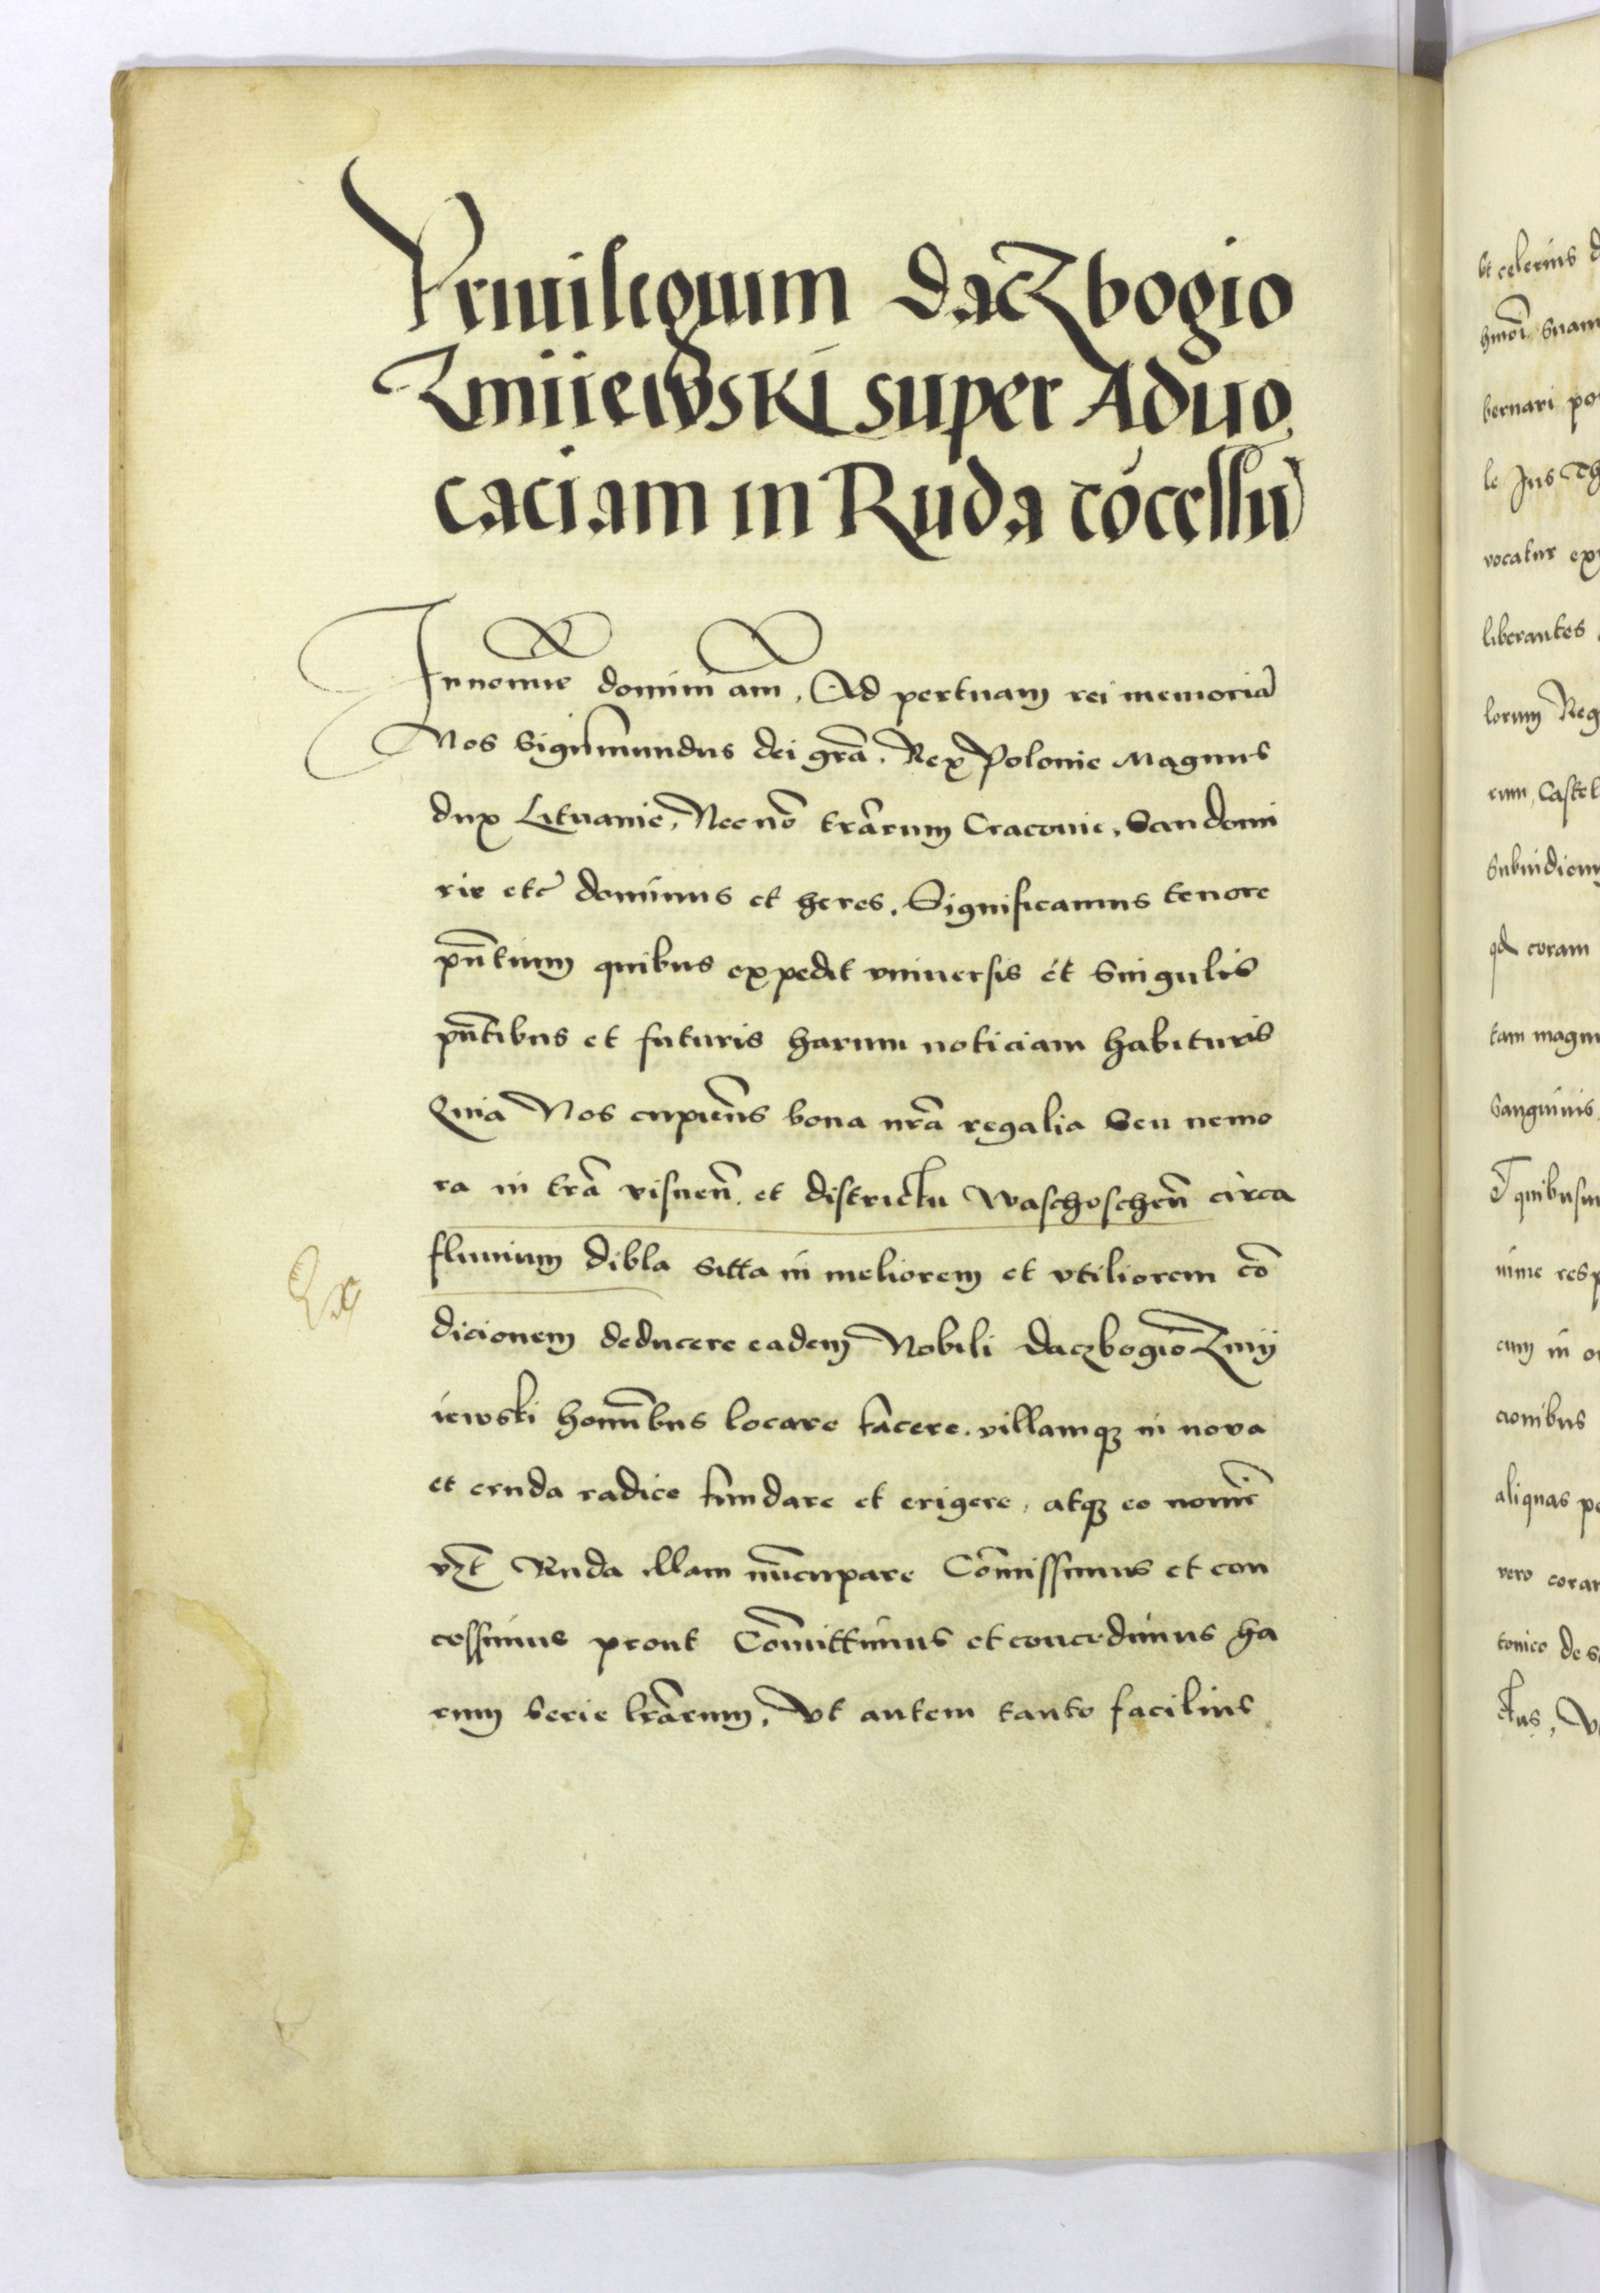 Priuilegium Daczbogio
Zmiiewski super Aduo
caciam in Ruda cōcessū
In nomīe domini am̄. Ad pertuam rei memoriā
Nos Sigismundus dei grā. Rex Polonie Magnus
dux Lituanie, Nec nō trārum Cracouie, Sandomi
rie etc̄ dominus et heres. Significamus tenore
pn̄tium quibus expedit vniuersis et singulis
pn̄tibus et futuris harum noticiam habituris
Quia Nos cupien̄s bona nrā regalia seu nemo
ra in trā visnen̄. et districtu Waschoschen̄ circa
fluuium dibla sitta in meliorem et vtiliorem cō
dicionem deducere eadem Nobili Daczbogio Zmij
iewski homībus locare facere. villamqȝ in noua
et cruda radice fundare et erigere, atqȝ eo nomīe
vȝt Ruda illam nūcupare Cōmissimus et con
cessimus prout Cōmittimus et concedimus ha
rum serie lrārum, Vt autem tanto facilius
Ex
vt celerius
hmōi suam
bernari
le Jus
vocatur
liberantes
lorum
rum, Castel
Subiudicum
qd coram
tam magn
Sanguinis,
Et quibusm
nime resp
cum in
cionibus
aliquas
vero coram
tonico de
ctus, V